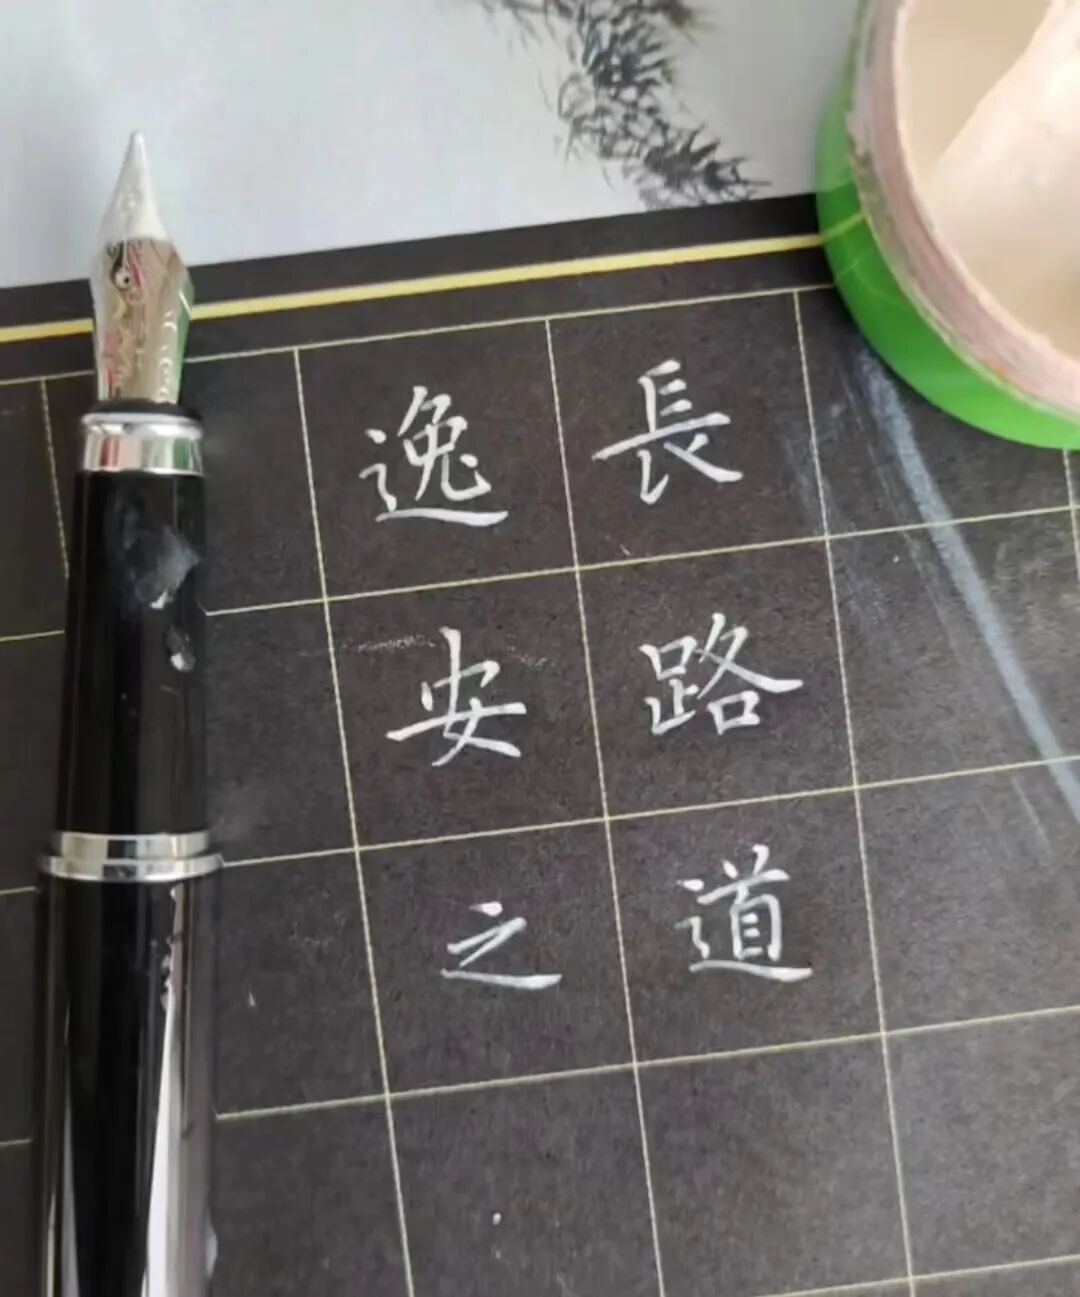 長路道
逸安之